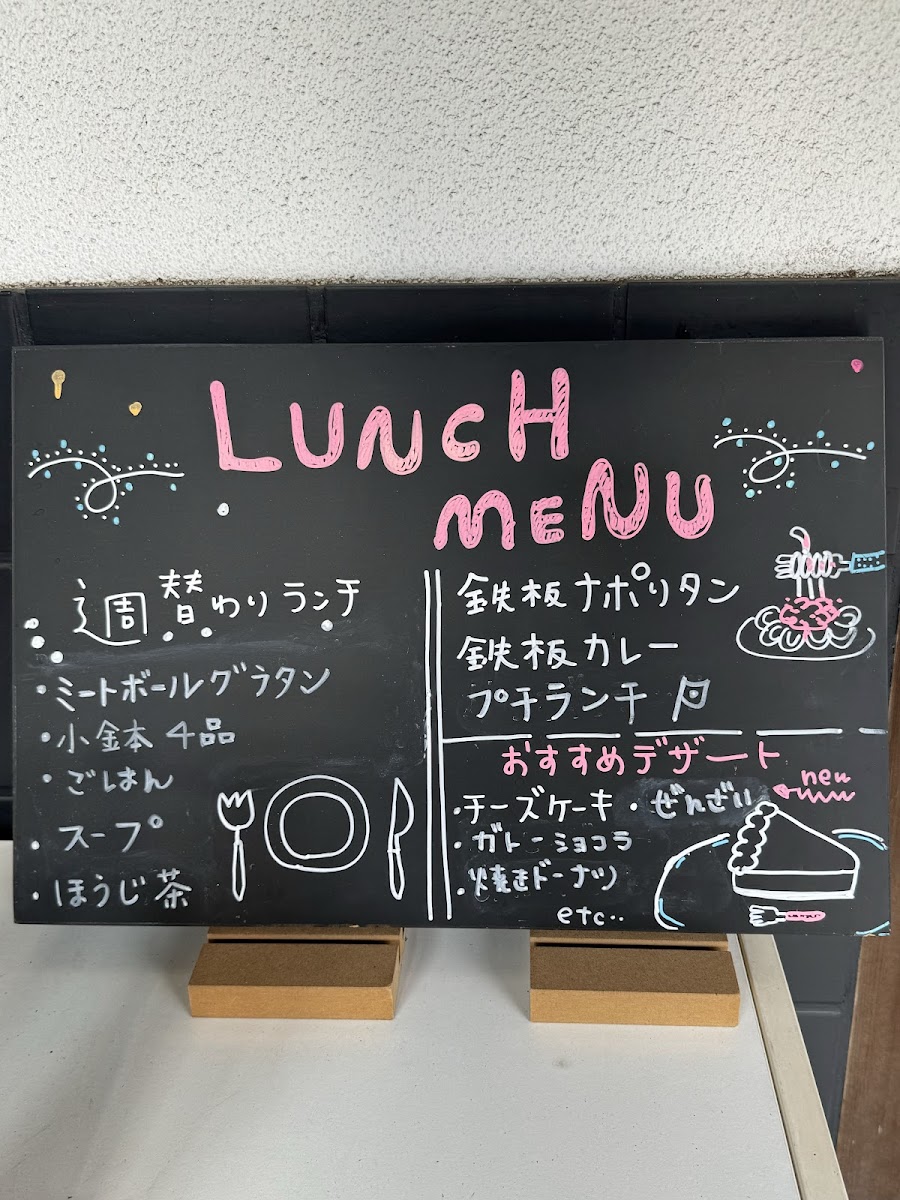 LUNCH
MENU
週替わりランチ
・ミートボールグラタン
・小金本 4品
・ごはん
・スープ
・ほうじ茶
鉄板ナポリタン
鉄板カレー
プチランチ
おすすめデザート
・チーズケーキ ・ぜんざい
new
・ガトーショコラ
・焼きドーナツ
etc..